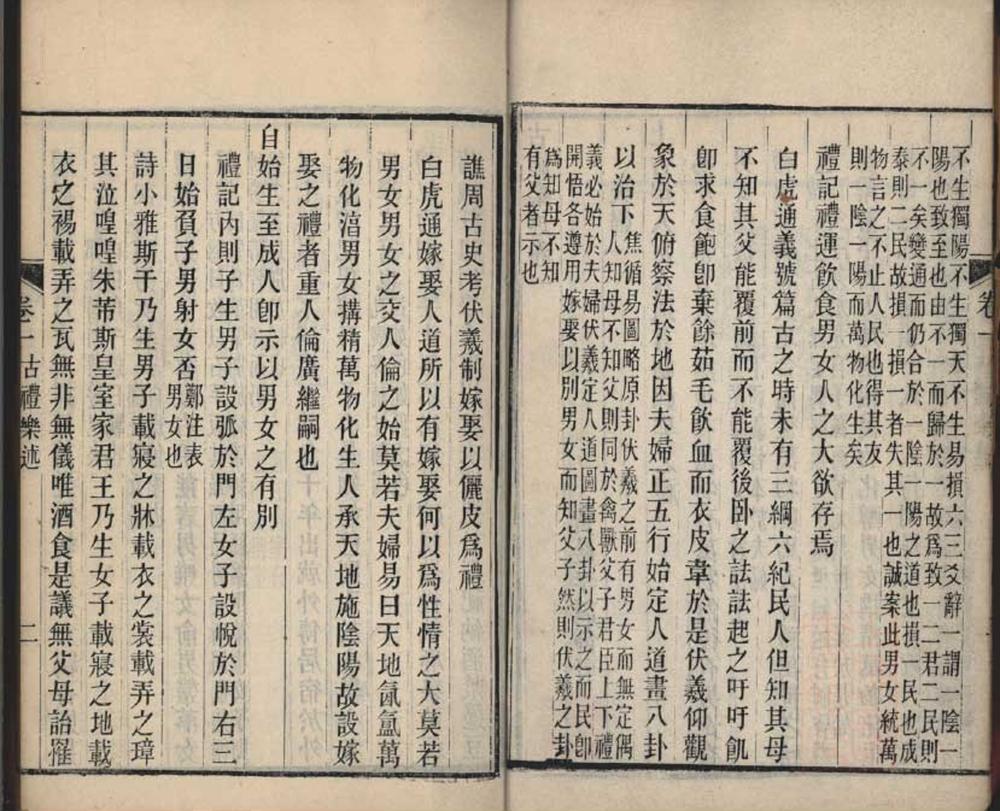 不生獨陽不生獨天不生易損六三爻辭一謂一陰一
陽也致至也由不一而歸於一故爲致一二君二民則
不一矣變通而仍合於一陰一陽之道也損一民也成
泰則二民故損一損一者失其一也誠案此男女統萬
物言之不止人民也得其友
則一陰一陽而萬物化生矣
禮記禮運飲食男女人之大欲存焉
白虎通義號篇古之時未有三綱六紀民人但知其母
不知其父能覆前而不能覆後臥之詓詓起之吁吁飢
卽求食飽卽棄餘茹毛飲血而衣皮韋於是伏羲仰觀
象於天俯察法於地因夫婦正五行始定人道畫八卦
以治下
焦循易圖略原卦伏羲之前有男女而無定偶
人知母不知父則同於禽獸父子君臣上下禮
義必始於夫婦伏羲定人道圖畫八卦以示之而民卽
開悟各遵用嫁娶以別男女而知父子然則伏羲之卦
爲知母不知
有父者示也
卷一
譙周古史考伏羲制嫁娶以儷皮爲禮
白虎通嫁娶人道所以有嫁娶何以爲性情之大莫若
男女男女之交人倫之始莫若夫婦易曰天地氤氳萬
物化湻男女搆精萬物化生人承天地施陰陽故設嫁
娶之禮者重人倫廣繼嗣也
自始生至成人卽示以男女之有別
禮記內則子生男子設弧於門左女子設帨於門右三
日始負子男射女否
鄭注表
男女也
詩小雅斯干乃生男子載寢之牀載衣之裳載弄之璋
其泣喤喤朱芾斯皇室家君王乃生女子載寢之地載
衣之裼載弄之瓦無非無儀唯酒食是議無父母詒罹
卷一古禮樂述
二